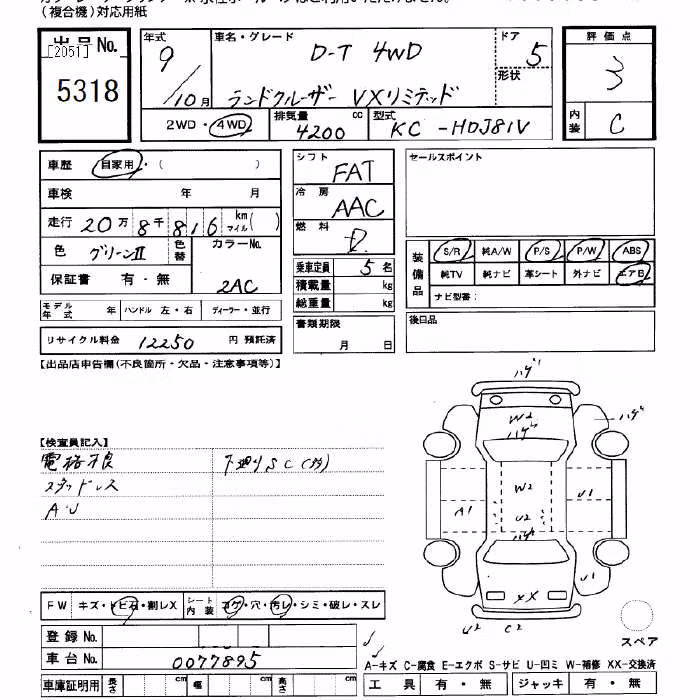 (複合機)対応用紙
出品No.
[2051]
5318
年式
9/10月
2WD・4WD
車名・グレード
D-T 4WD
ランドクルーザー VXリミテッド
ドア
5
形状
排気量
4200 cc
型式
KC-HDJ81V
評価点
3
内装
C
車歴 自家用・( )
車検 年 月
走行 20万8千816 km マイル( )
色 グリーンⅡ 色替
カラーNo.
2AC
保証書 有・無
モデル年式 年 ハンドル 左・右 ディーラー・並行
リサイクル料金 12250 円 預託済
シフト
FAT
冷房
AAC
燃料
D.
乗車定員 5名
積載量 kg
総重量 kg
書類期限
月 日
セールスポイント
装備品
S/R 純A/W P/S P/W ABS
純TV 純ナビ 革シート 外ナビ エアB
ナビ型番:
後日品
【出品店申告欄(不良箇所・欠品・注意事項等)】
【検査員記入】
電格不良
下廻りSC(多)
スタッドレス
AU
ハゲ
W2
ハゲ
ハゲ
W2
A1
U2
ハゲ
U1
U1
XX
U2
C2
スペア
FW キズ・トビ石・割レX
シート内装 コゲ・穴・汚レ・シミ・破レ・スレ
登録No.
車台No. 0077895
車庫証明用 長さ cm 幅 cm 高さ cm
A-キズ C-腐食 E-エクボ S-サビ U-凹ミ W-補修 XX-交換済
工具 有・無 ジャッキ 有・無